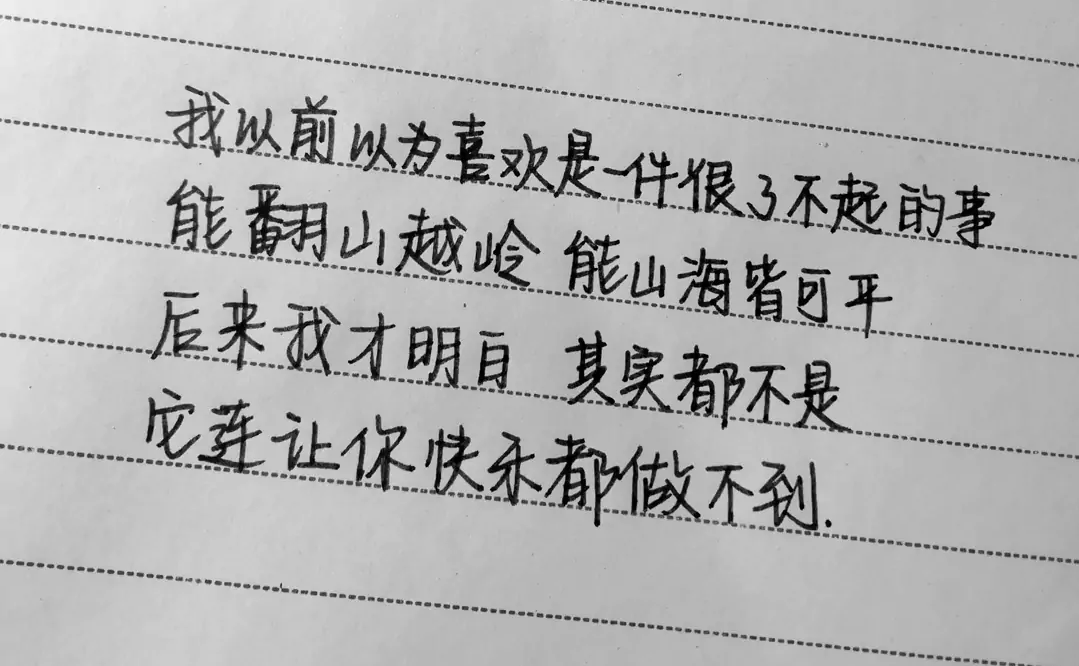 我以前以为喜欢是一件很了不起的事
能翻山越岭 能山海皆可平
后来我才明白 其实都不是
它连让你快乐都做不到.